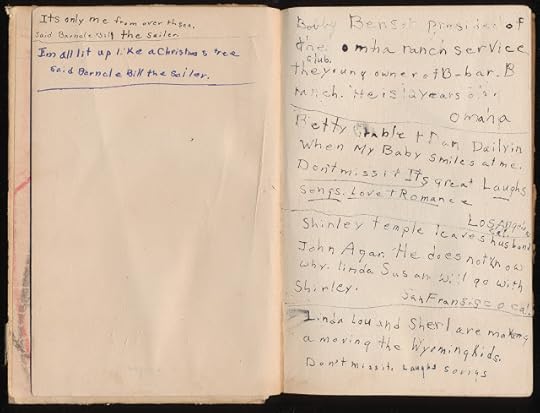 Its only me from over thsea.
said Barnale Bill the sailer
Im all lit up like a Christmas tree
said Barnale Bill the Sailer.
Bobby Benson presided of
the omha ranch service
club.
the young owner of B-bar. B
ranch. He is 12 years old.
Omaha
Betty Grable + Dan Dailyin
When My Baby smiles at me.
Dont missit Its great Laughs
Songs. Love + Romance
Los Angeles
Cal.
Shirley temple leaves husband
John Agar. He does not know
why. linda Susan will go with
Shirley.
San Fransisco cal.
Linda Lou and Sherl are making
a moving the Wyoming kids.
Don't missit. Laughs